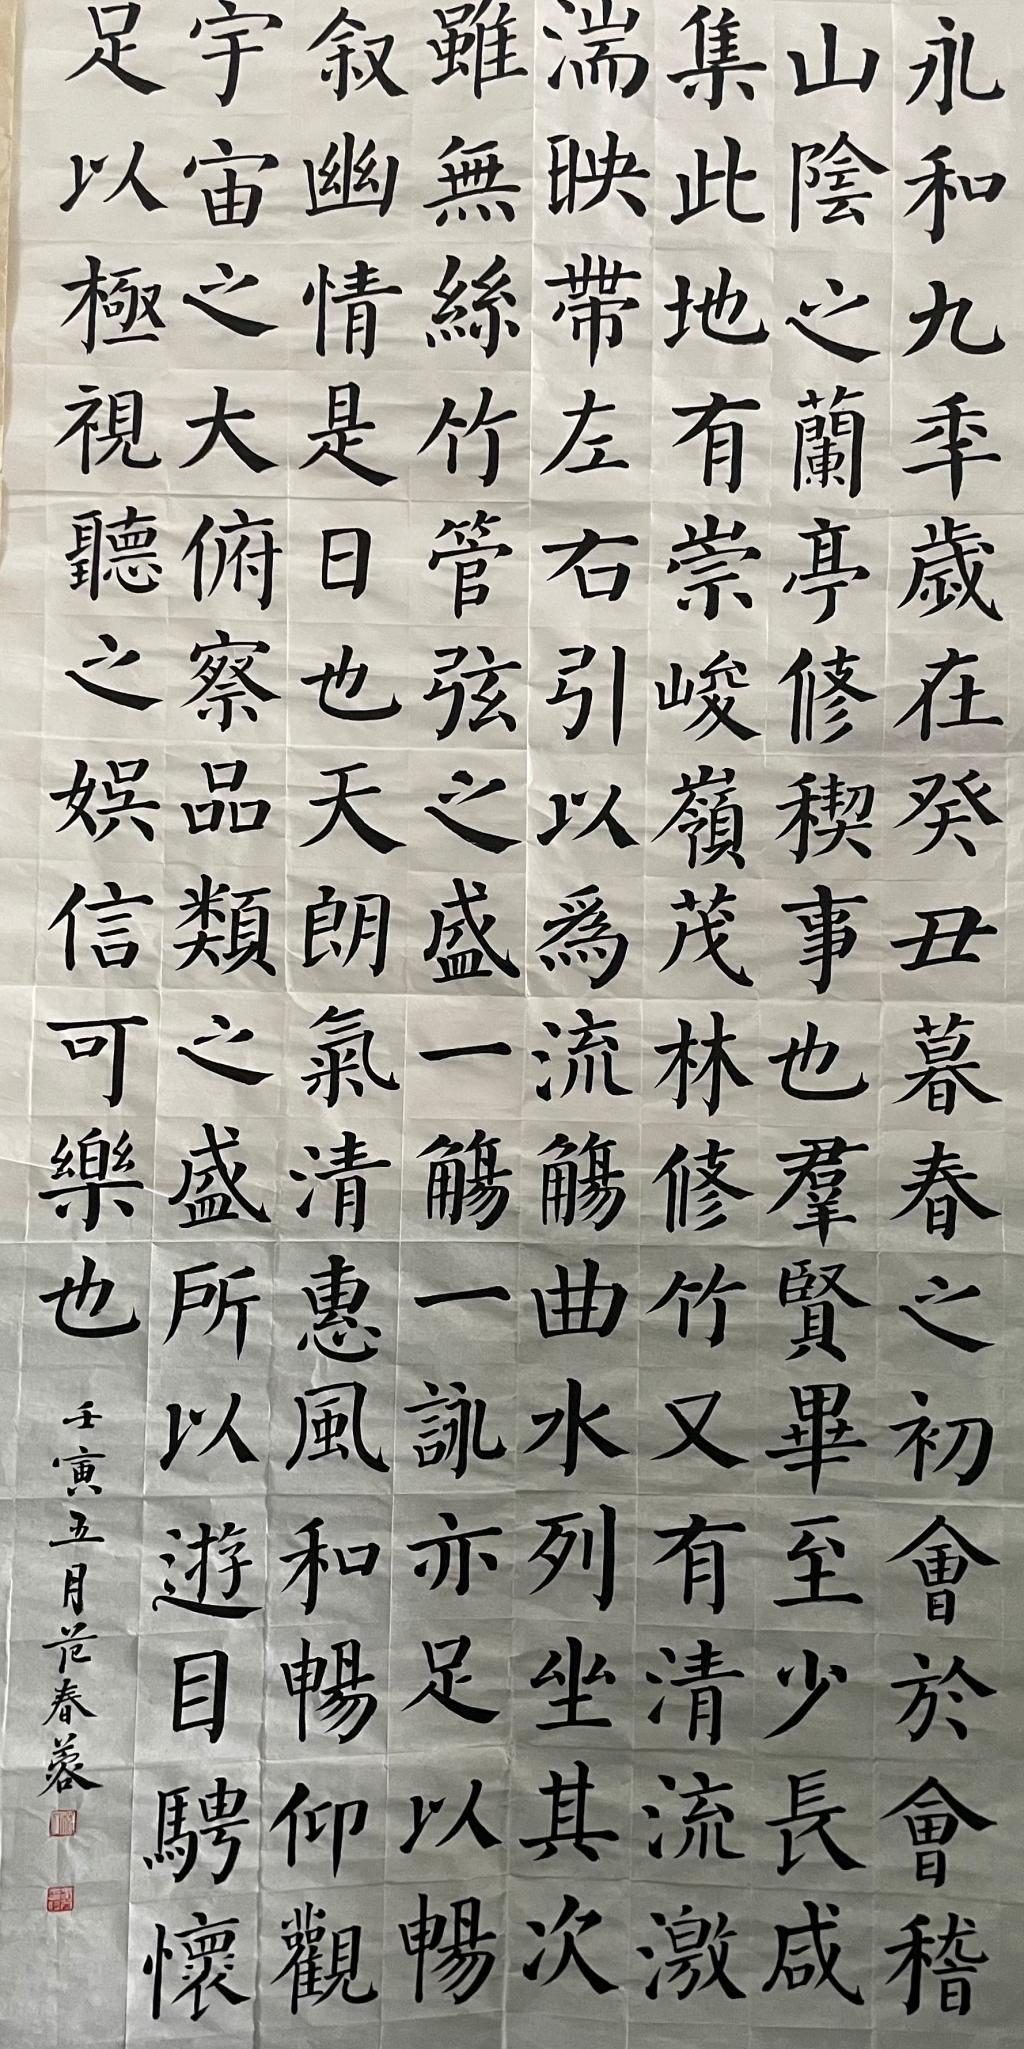 永和九秊歲在癸丑暮春之初會於會稽
山陰之蘭亭修稧事也羣賢畢至少長咸
集此地有崇峻嶺茂林修竹又有清流激
湍映帶左右引以爲流觴曲水列坐其次
雖無絲竹管弦之盛一觴一詠亦足以暢
叙幽情是日也天朗氣清惠風和暢仰觀
宇宙之大俯察品類之盛所以遊目騁懷
足以極視聽之娛信可樂也
壬寅五月范春蓉